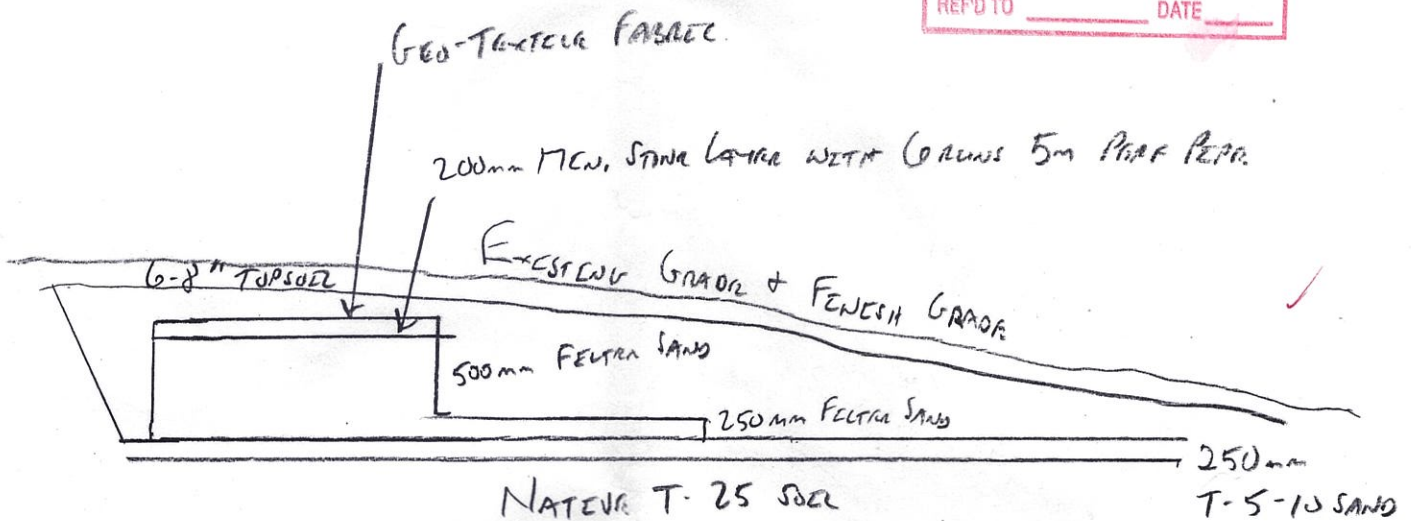 REF'D TO ________ DATE ____
GEO-TEXTILE FABRIC.
200mm MIN. STONE LAYER WITH 6 RUNS 5m PERF PIPE.
EXISTING GRADE & FINISH GRADE
6-8" TOPSOIL
500mm FILTER SAND
250mm FILTER SAND
250mm
T-5-10 SAND
NATIVE T-25 SOIL